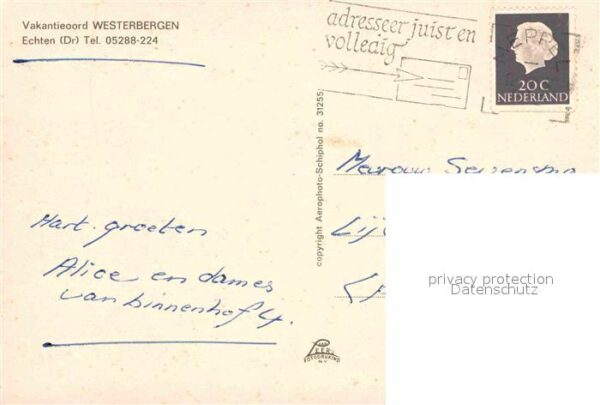 Vakantieoord WESTERBERGEN
Echten (Dr) Tel. 05288-224
adresseer juist en
volledig
MEPPEL
20 C
NEDERLAND
copyright Aerophoto-Schiphol no. 31255
Mevrouw
Hart. groeten
Alice en dames
van binnenhof 4.
privacy protection
Datenschutz
FOTODRUKING
N.V.